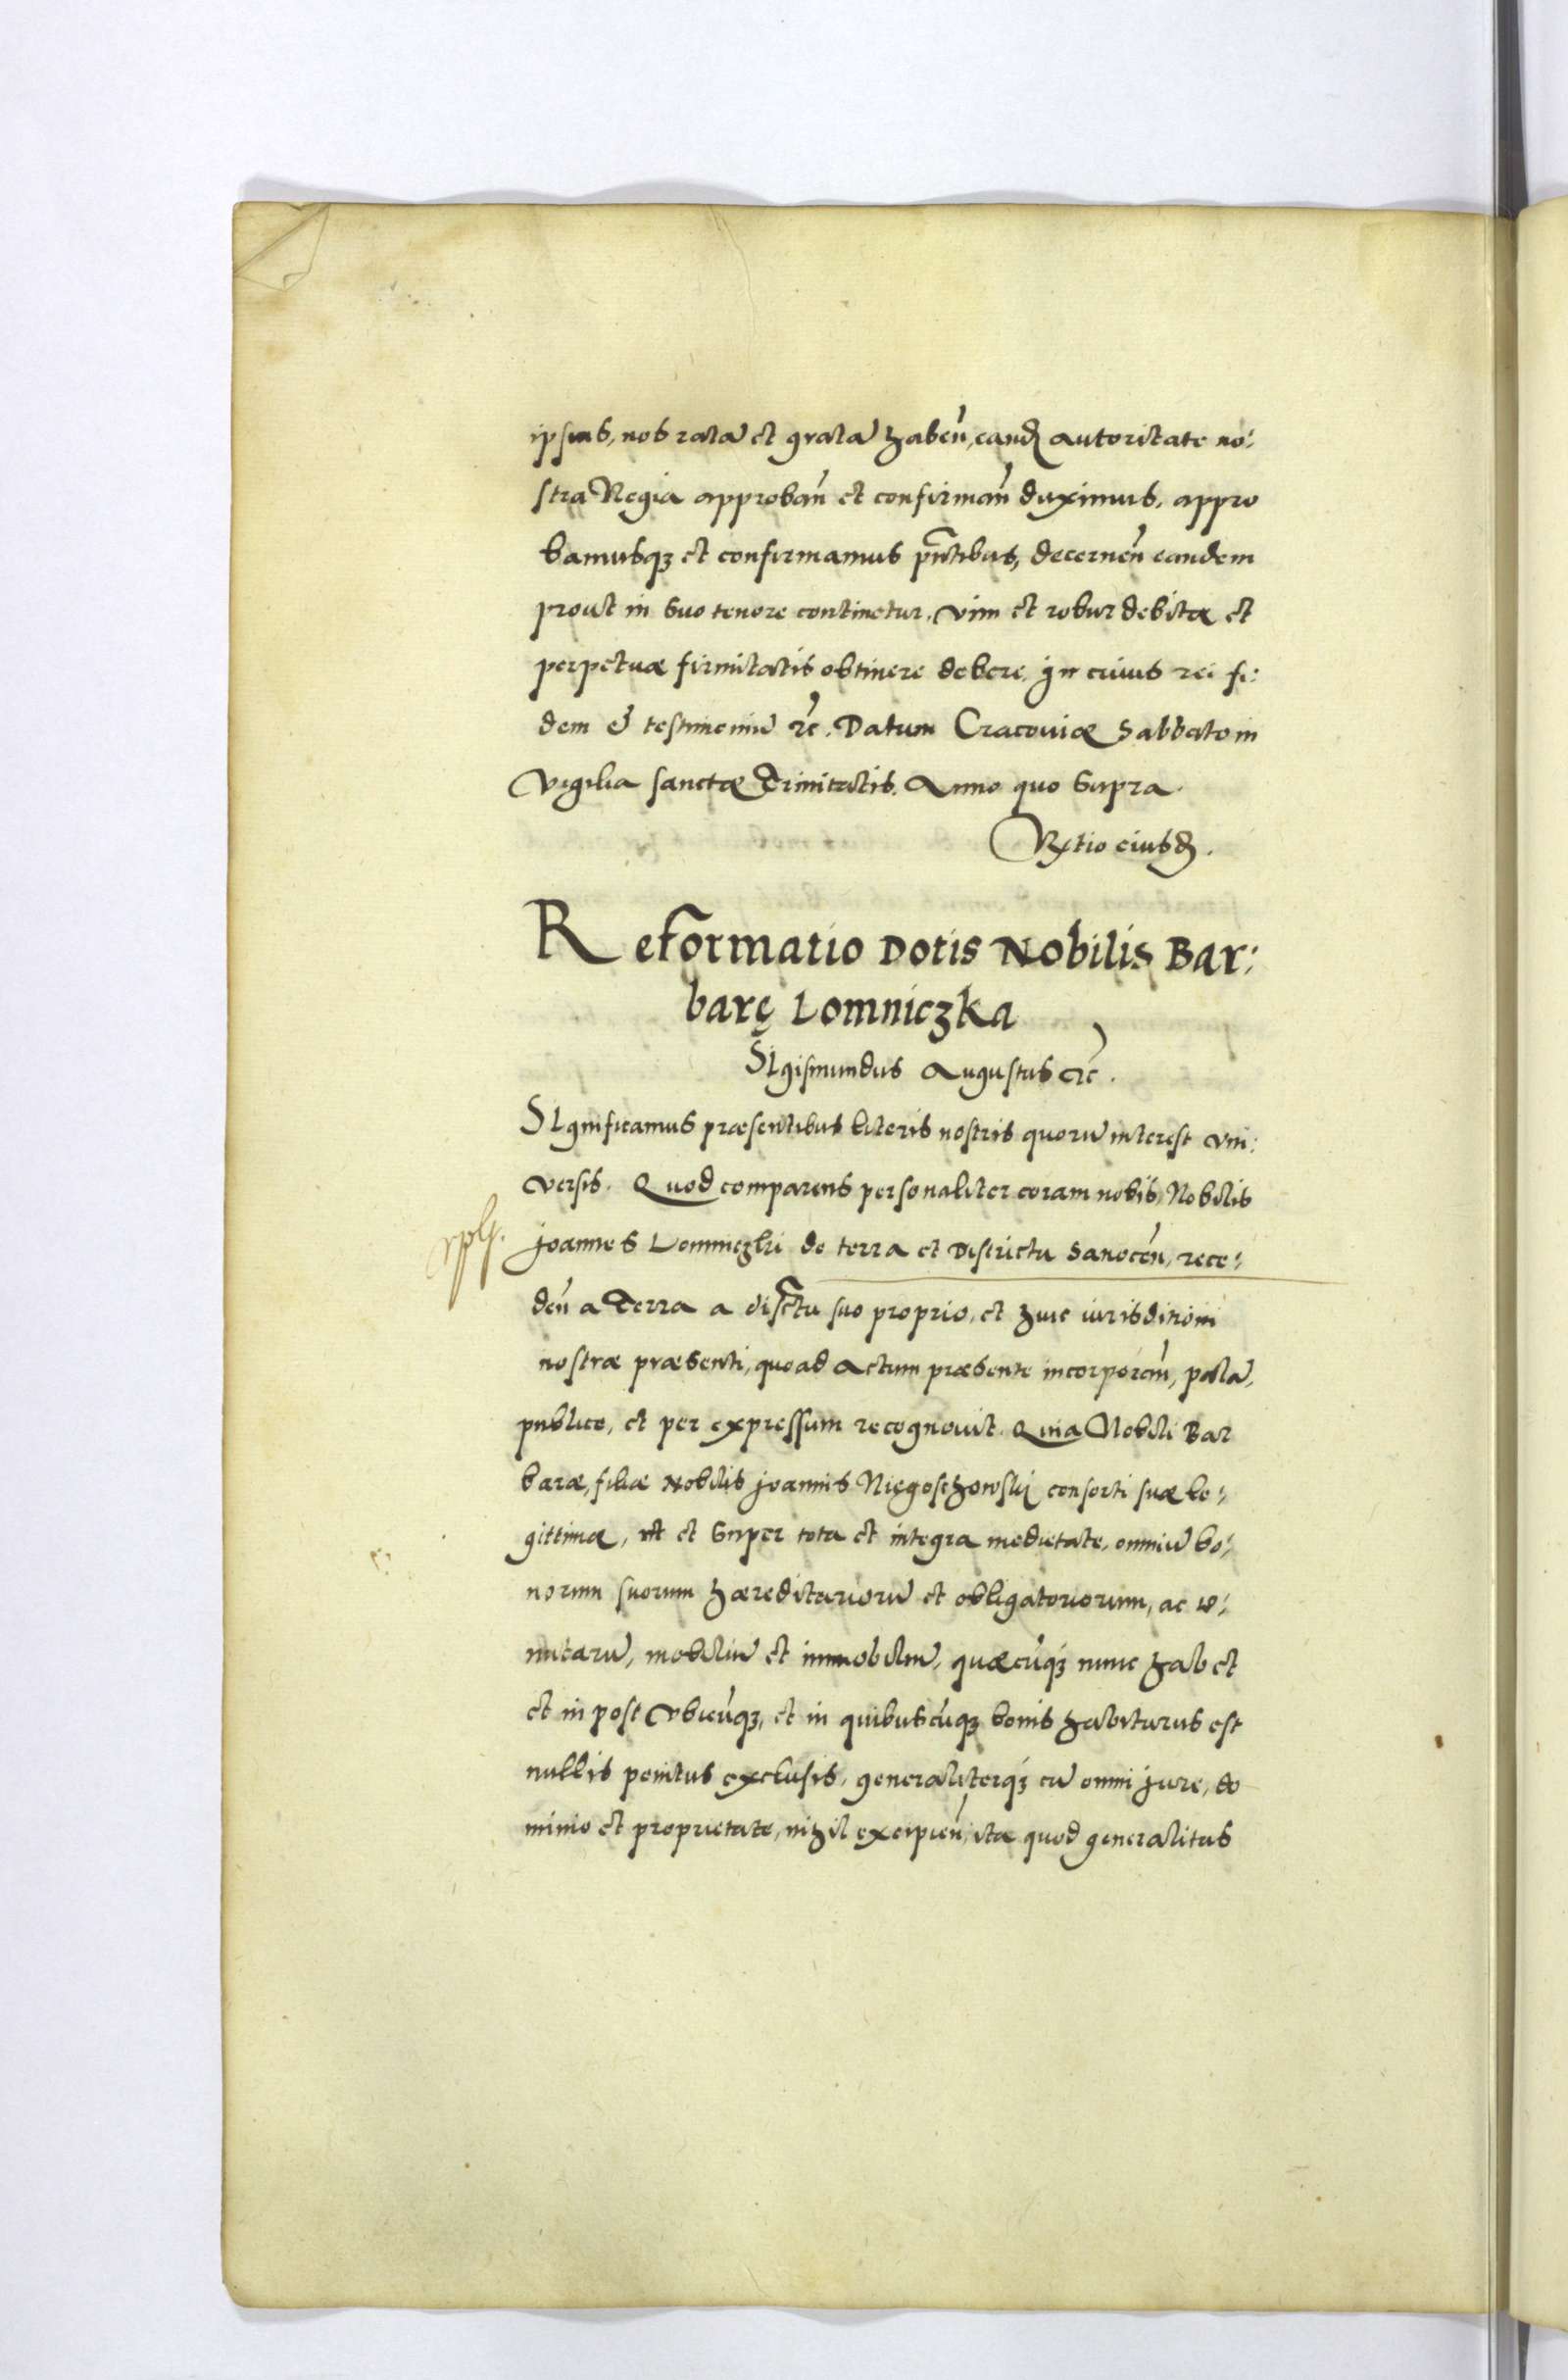 ipsius, nos ratā et gratā haben̄, eand autoritate no:
stra Regia approban̄ et confirman̄ duximus, appro
bamusqȝ et confirmamus pn̄tibus, decernen̄ eandem
prout in suo tenore continetur, vim et robur debitæ et
perpetuæ firmitatis obtinere debere. In cuius rei fi:
dem & testimoniū rc̄. Datum Cracoviæ Sabbato in
Vigilia sanctæ Trinitatis. Anno quo supra.
Rltio eiusd.
Reformatio Dotis Nobilis Bar:
barę Lomniczka
SIgismundus Augustus rc̄.
SIgnificamus præsentibus literis nostris quorū interest vni:
versis. Quod comparens personaliter coram nobis, Nobilis
Joannes Lomniczki de terra et Districtu Sanocen̄, rece:
den̄ a Terra a dis̄ctu suo proprio, et huic iurisditioni
nostræ præsenti, quoad Actum præsente incorporan̄, palā,
publice, et per expressum recognovit. Quia Nobili Bar
baræ, filiæ Nobilis Joannis Nięgoschowskj consorti suæ le:
gittimæ, et super tota et integra medietate, omniū bo:
norum suorum hæreditariorū et obligatoriorum, ac
mobiliū et immobiliū, quæcūqȝ nunc habet
et in post vbicūqȝ, et in quibuscūqȝ bonis habiturus est
nullis penitus exclusis, generaliterqȝ cū omni jure, do
minio et proprietate, nihil excipien̄, ita quod generalitas